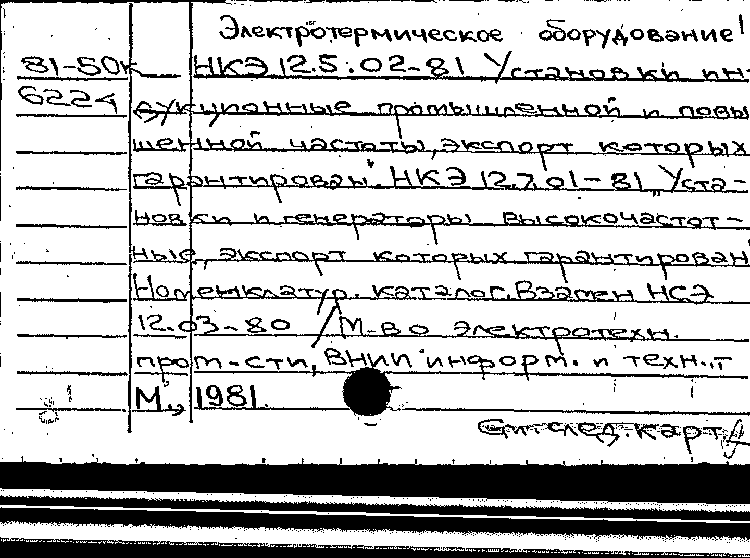 Электротермическое оборудование!
81-50к НКЭ 12.5.02-81 „Установки ин-
6224 дукционные промышленной и повы
шенной частоты, экспорт которых
гарантирован". НКЭ 12.7.01-81 „Уста-
новки и генераторы высокочастот-
ные, экспорт которых гарантирован
Номенклатур. каталог. Взамен НСЭ
12.03-80 / М-во электротехн.
пром-сти, ВНИИ информ. и техн.
М., 1981.
См. след. карт